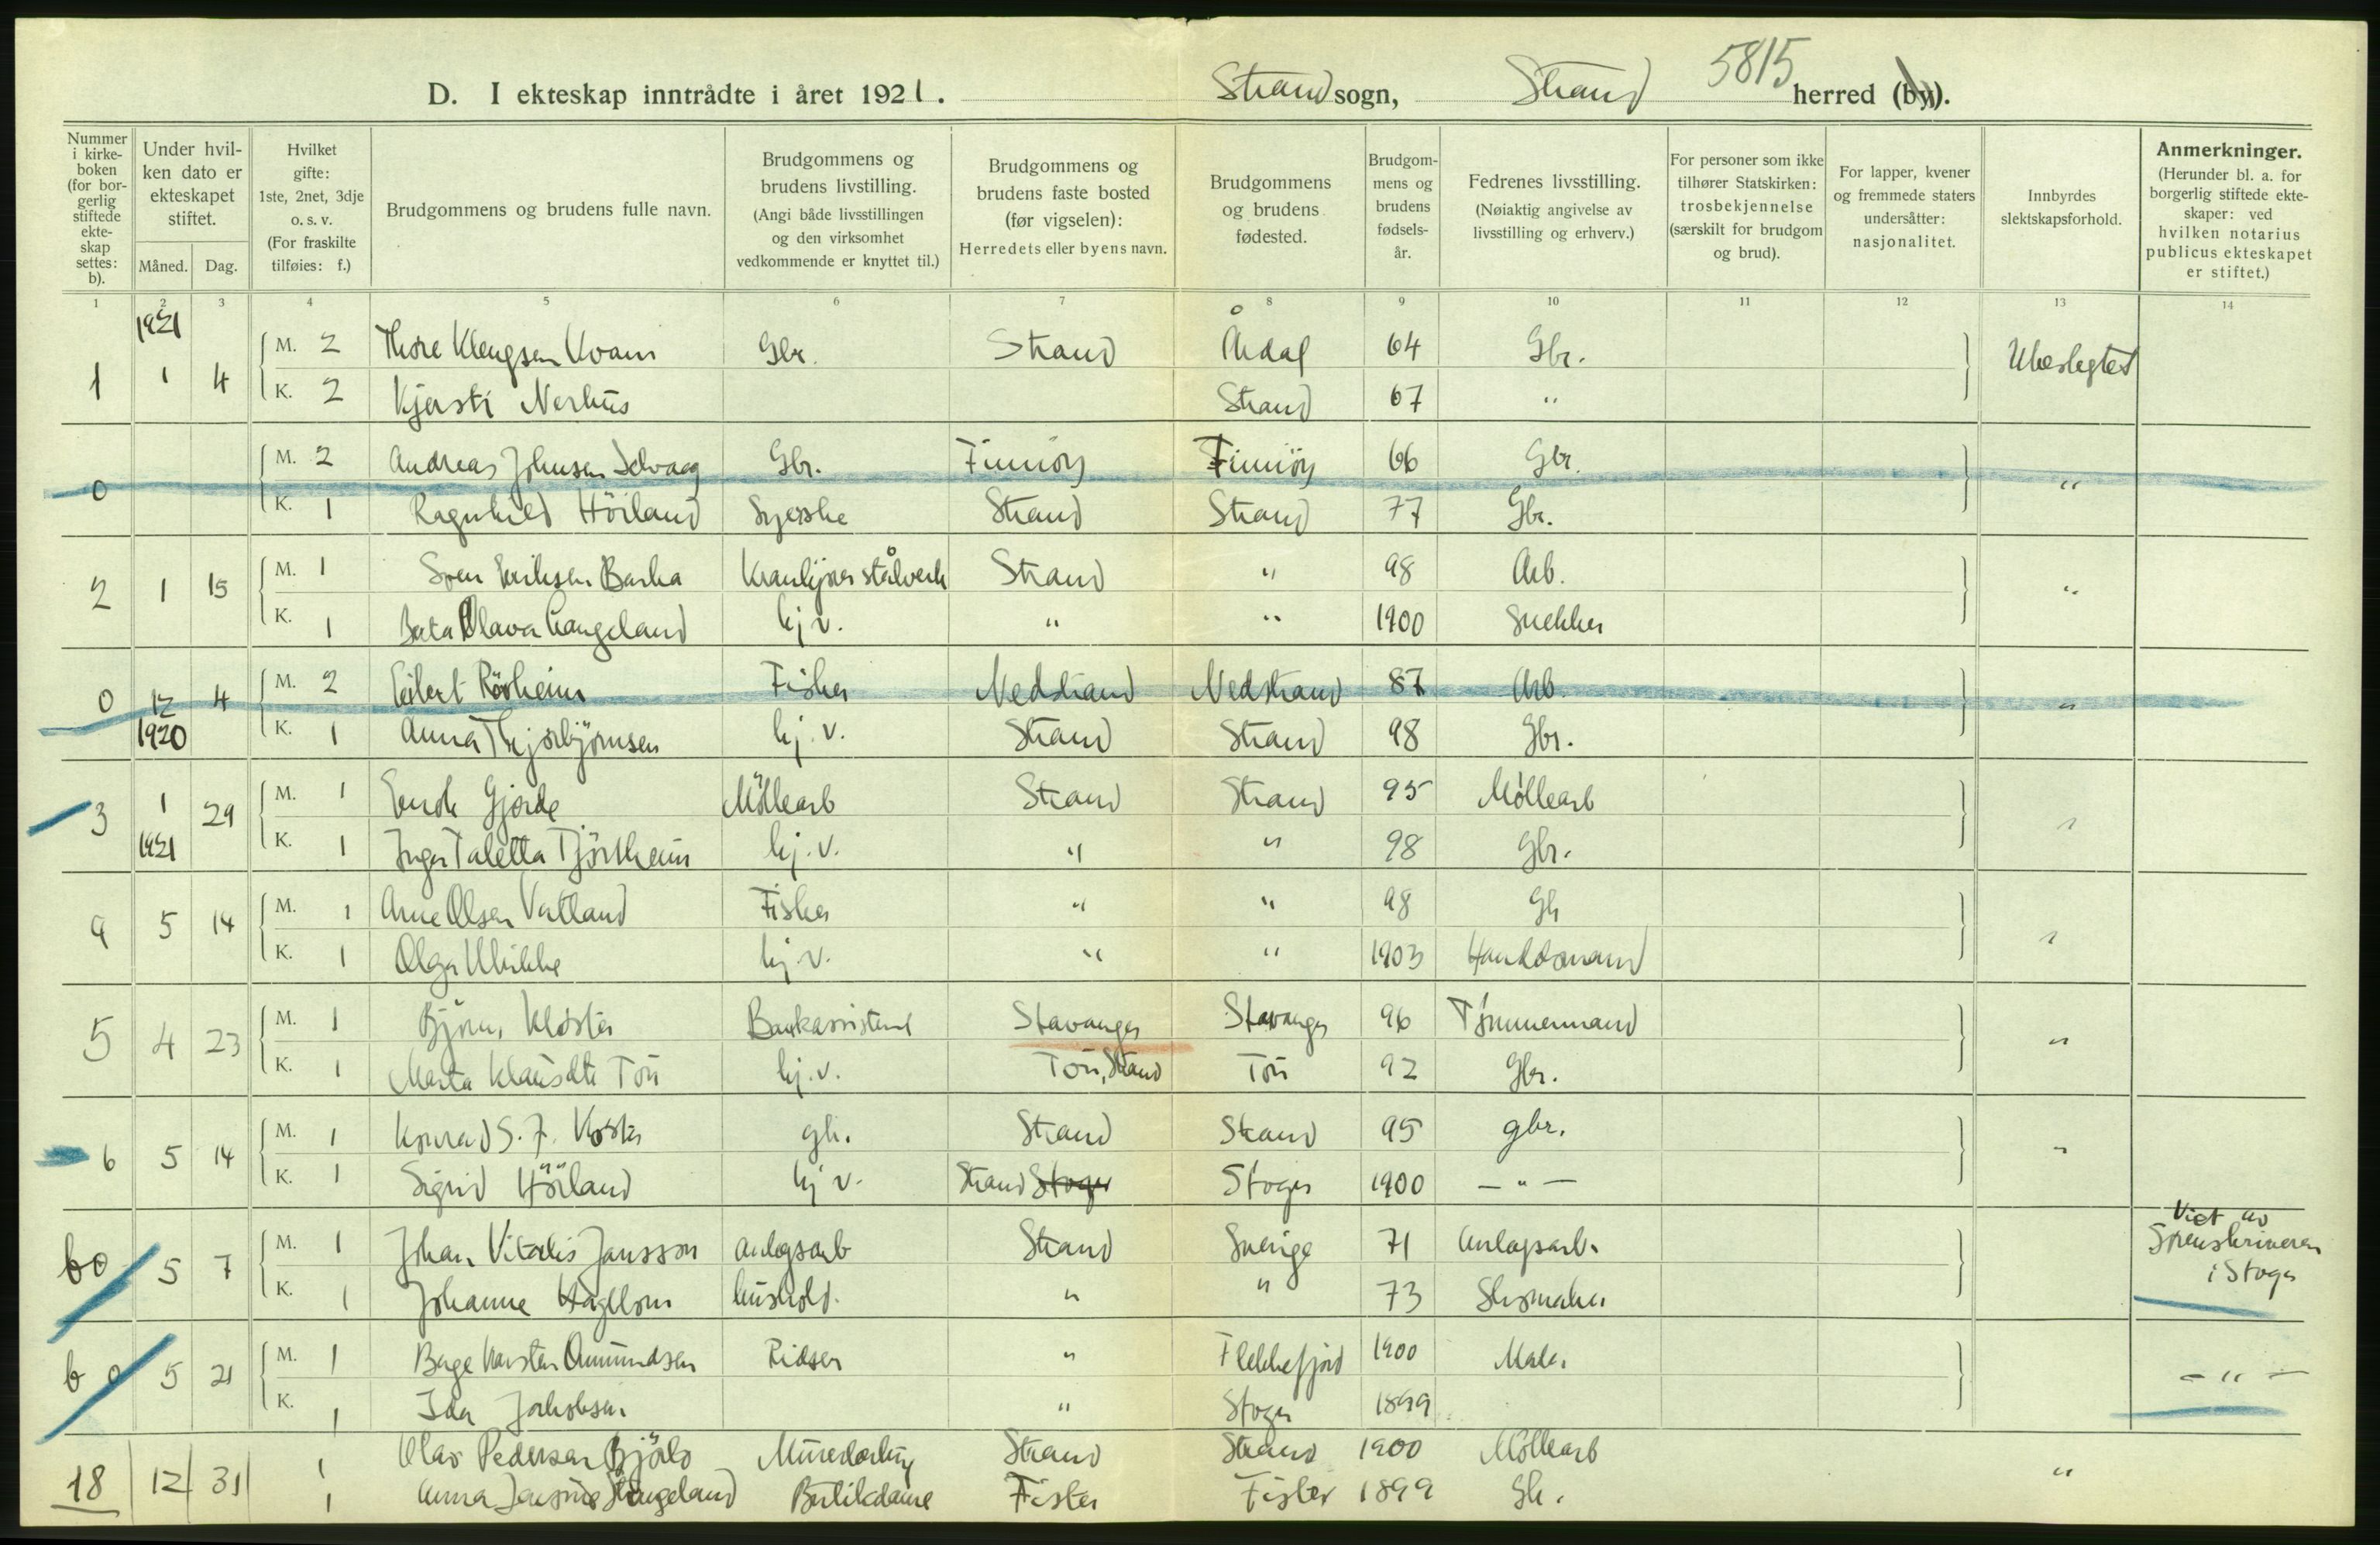 5815
D. I ekteskap inntrådte i året 1921. Strand sogn, Strand herred (by).
Nummer i kirke-boken (for bor-gerlig stiftede ekte-skap settes: b).
Under hvil-ken dato er ekteskapet stiftet.
Måned. Dag.
Hvilket gifte: 1ste, 2net, 3dje o. s. v. (For fraskilte tilføies: f.)
Brudgommens og brudens fulle navn.
Brudgommens og brudens livstilling. (Angi både livsstillingen og den virksomhet vedkommende er knyttet til.)
Brudgommens og brudens faste bosted (før vigselen): Herredets eller byens navn.
Brudgommens og brudens fødested.
Brudgom-mens og brudens fødsels-år.
Fedrenes livsstilling. (Nøiaktig angivelse av livsstilling og erhverv.)
For personer som ikke tilhører Statskirken: trosbekjennelse (særskilt for brudgom og brud).
For lapper, kvener og fremmede staters undersåtter: nasjonalitet.
Innbyrdes slektskapsforhold.
Anmerkninger. (Herunder bl. a. for borgerlig stiftede ekte-skaper: ved hvilken notarius publicus ekteskapet er stiftet.)
1 2 3 4 5 6 7 8 9 10 11 12 13 14
1921
1 1 4 M. 2 Thore Klengsen Kvam Gbr. Strand Årdal 64 Gbr. Ubeslegtet
K. 2 Kjersti Nerhus Strand 67 "
0 M. 2 Andreas Johnsen Gbr. Finnöy Finnöy 66 Gbr. "
K. 1 Ragnhild Höiland Syerske Strand Strand 77 Gbr.
2 1 15 M. 1 Sven Eriksen Barka Krankjører stålverk Strand " 98 Arb. "
K. 1 Berta Olava Langeland hj. v. " " 1900 Snekker
0 12 4 M. 2 Eilert Rörheim Fisker Nedstrand Nedstrand 87 Arb. "
1920 K. 1 Anna Thjorbjörnsen hj. v. Strand Strand 98 Gbr.
3 1 29 M. 1 Gjerde Möllearb Strand Strand 95 Möllearb "
1921 K. 1 Inger Taletta Tjöstheim hj. v. " " 98 Gbr.
4 5 14 M. 1 Arne Olsen Vatland Fisker " " 98 Gb "
K. 1 Olga Ulrikke hj. v. " " 1903 Handelsmand
5 4 23 M. 1 Björn Kloster Bankassistent Stavanger Stavanger 96 Tömmermand "
K. 1 Marta Klausdtr Tou hj. v. Tou, Strand Tou 92 Gbr.
6 5 14 M. 1 Konrad S. F. gb. Strand Strand 95 gbr. "
K. 1 Sigrid Höiland hj v. Strand Stvger Stvger 1900 — " —
b 0 5 7 M. 1 Johan Vitalis Jansson anlegsarb Strand Sverige 71 Anlegsarb. Viet av Sorenskriveren i Stvgr
K. 1 Johanne Hagblom hushold. " " 73 Skomaker
b 0 5 21 M. 1 Karsten Amundsen Ridser " Flekkefjord 1900 Maler — " —
K. 1 Ida Jakobsen " Stvgr 1899
18 12 31 1 Olav Pedersen Strand Strand 1900 Möllearb "
1 Anna Butikdame Fister Fister 1899 Gb.